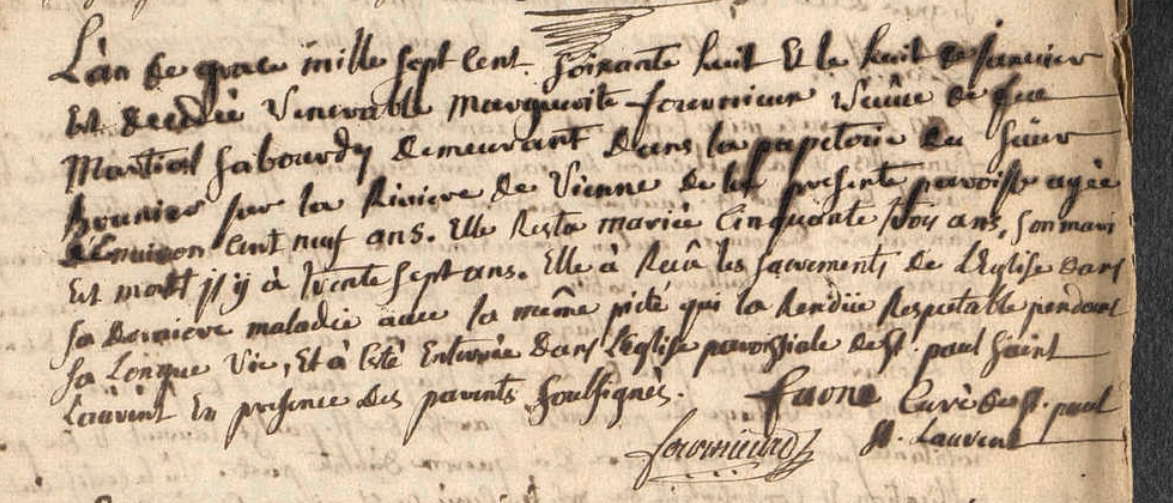 L'an de grace mille sept cent soixante huit Et le huit de Janvier
Est decedée Venerable Marguerite fourniaux Veüve de feu
Martial Sabourdy demeurant dans la papeterie du Sieur
sur la Riviere de Vienne de la presente paroisse agée
d'Environ cent neuf ans. Elle Resta mariée Cinquante trois ans, son mari
Est mort Il y à trente sept ans. Elle à Reçû les sacrements de L'Eglise dans
sa derniere maladie avec la même pieté qui la Rendüe Respectable pendant
sa Longue Vie, Et à Eté Enterrée dans L'Eglise paroissiale de St. paul Saint
Laurent En presence des parents soussignés. Curé de St. paul
St. Laurent